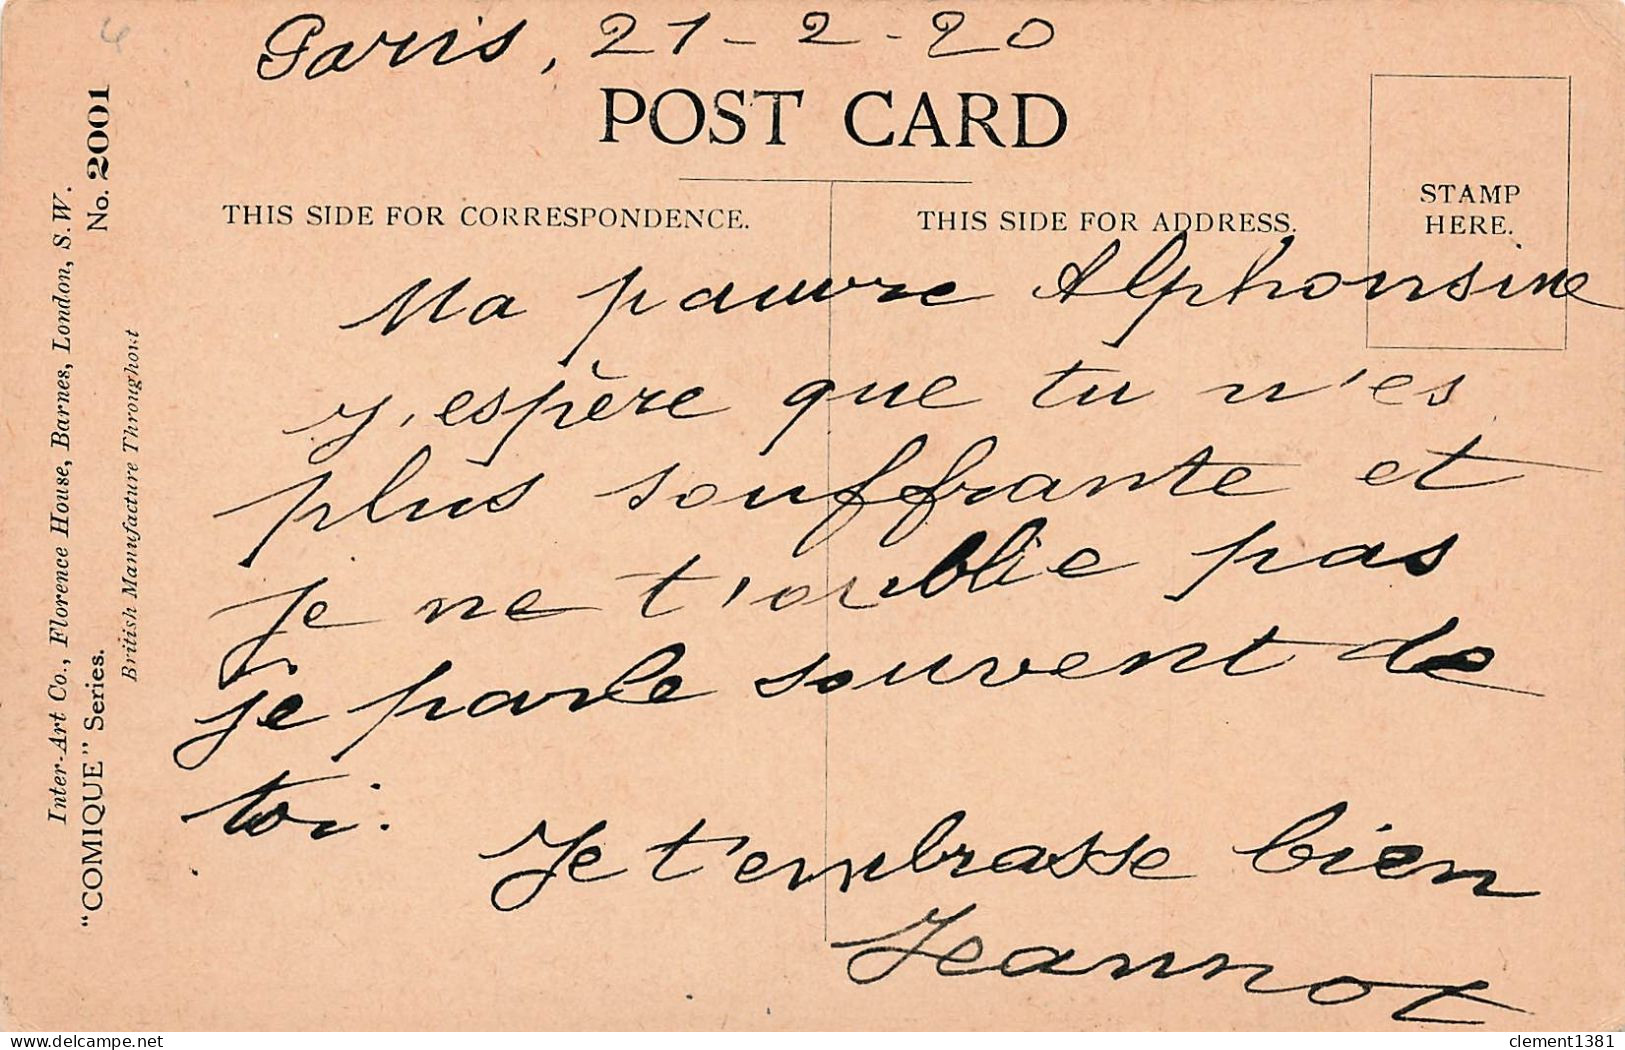 Paris, 21-2-20
POST CARD
THIS SIDE FOR CORRESPONDENCE.
THIS SIDE FOR ADDRESS.
STAMP
HERE.
Ma pauvre Alphonsine
j'espère que tu n'es
plus souffrante et
je ne t'oublie pas
je parle souvent de
toi.
Je t'embrasse bien
Jeannot
Inter-Art Co., Florence House, Barnes, London, S.W.
"COMIQUE" Series. No. 2001
British Manufacture Throughout
delcampe.net
clement1381